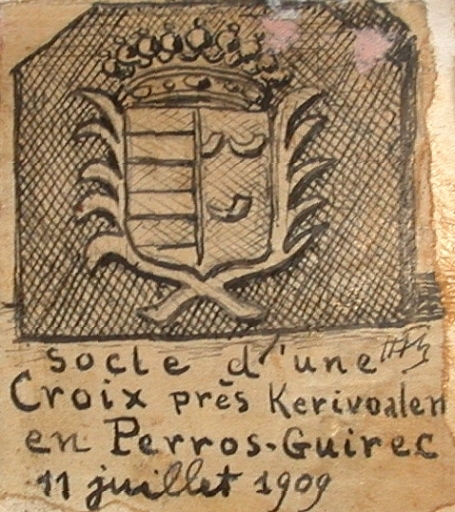 socle d'une
Croix près Kerivoalen
en Perros-Guirec
11 juillet 1909